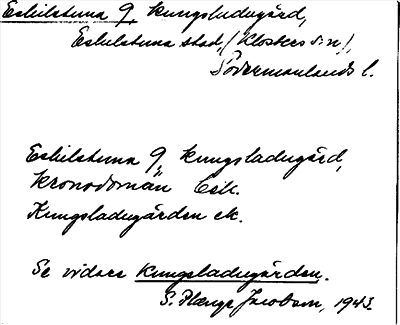 Eskilstuna 9, kungsladugård,
Eskilstuna stad, (Klosters s:n),
Södermanlands l.
Eskilstuna 9, kungsladugård,
Kronodomän Esk.
Kungsladugården ek.
Se vidare Kungsladugården.
S. Plænge Jacobson, 1943.